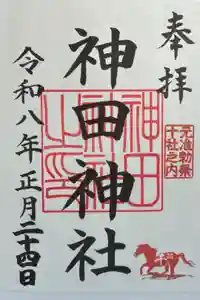 奉拝
准勅祭
十社之内
神田神社
令和八年正月二十四日